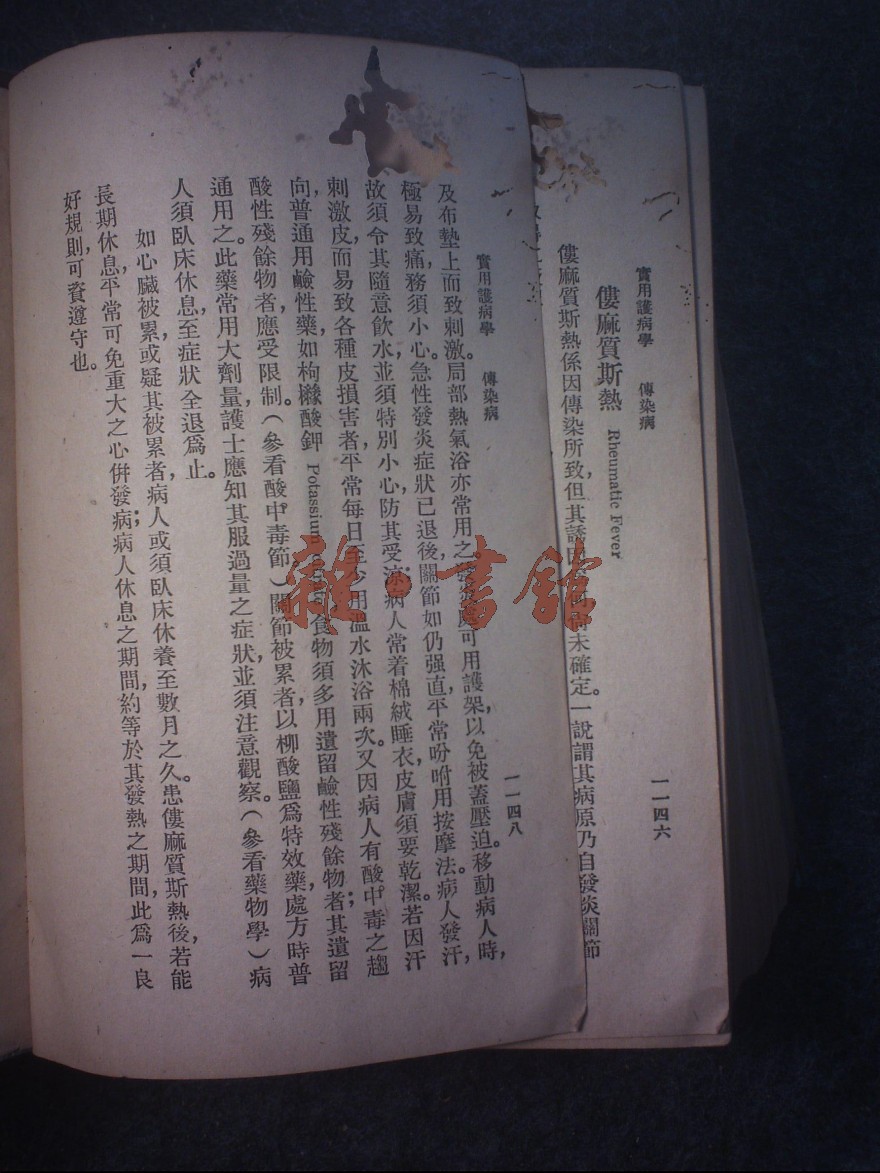 實用護病學 傳染病 一一四六
僂麻質斯熱 Rheumatic Fever
僂麻質斯熱係因傳染所致,但其誘 未確定。一說謂其病原乃自發炎關節
實用護病學 傳染病 一一四八
及布墊上而致刺激。局部熱氣浴亦常用之。 可用護架,以免被蓋壓迫。移動病人時,
極易致痛,務須小心。急性發炎症狀已退後,關節如仍强直,平常吩咐用按摩法。病人發汗,
故須令其隨意飲水,並須特別小心防其受涼。病人常着棉絨睡衣,皮膚須要乾潔。若因汗
刺激皮而易致各種皮損害者,平常每日至少用溫水沐浴兩次。又因病人有酸中毒之趨
向,普通用鹼性藥如枸櫞酸鉀 Potassium 食物須多用遺留鹼性殘餘物者;其遺留
酸性殘餘物者應受限制。(參看酸中毒節)關節被累者,以柳酸鹽爲特效藥,處方時普
通用之。此藥常用大劑量,護士應知其服過量之症狀,並須注意觀察。(參看藥物學)病
人須臥床休息,至症狀全退爲止。
如心臟被累,或疑其被累者,病人或須臥床休養至數月之久。患僂麻質斯熱後,若能
長期休息,平常可免重大之心併發病;病人休息之期間,約等於其發熱之期間,此爲一良
好規則,可資遵守也。
雜·書館